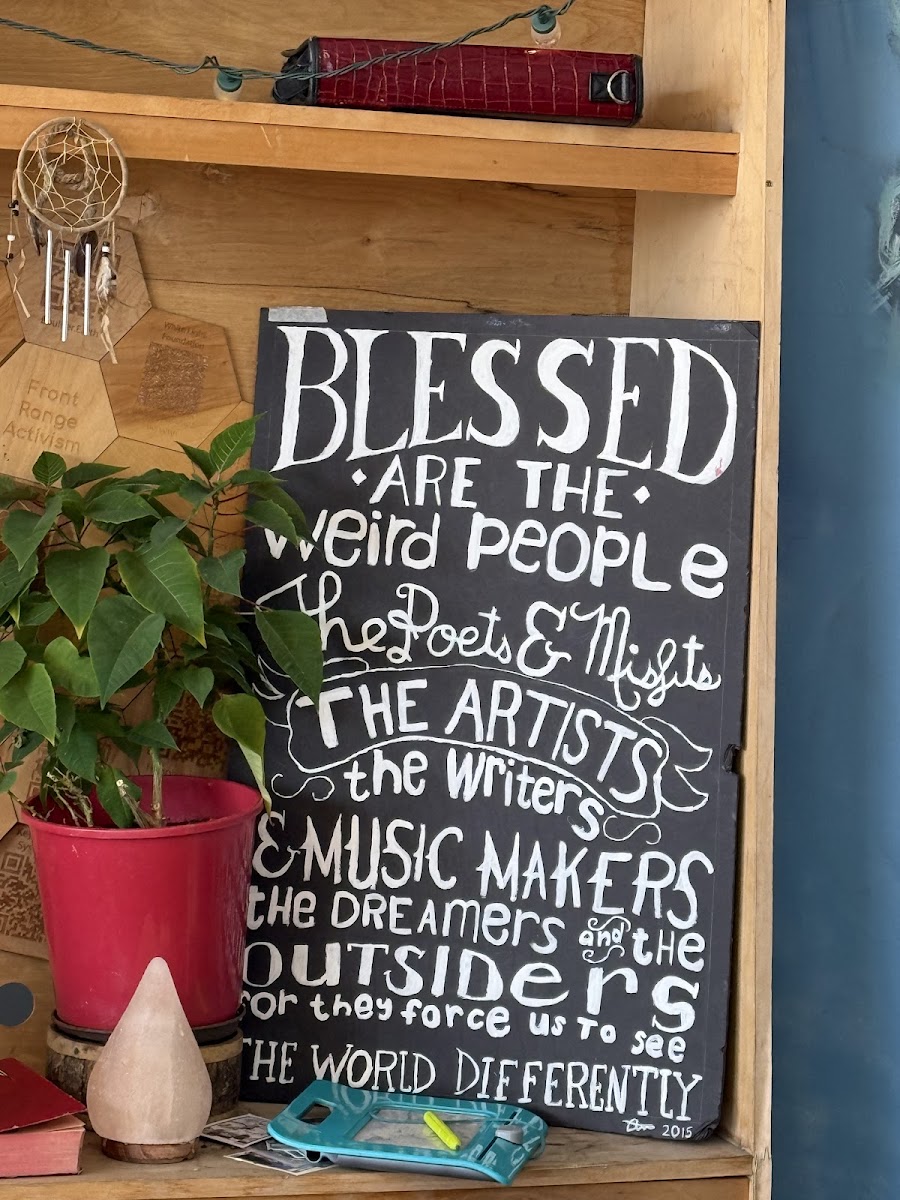 Front
Range
Activism
Foundation
BLESSED
ARE THE
weird PEOPLe
The Poets & Misfits
THE ARTISTS
the writers
& MUSIC MAKERS
tHe DREAmers and tHe
OUTSIDers
for they force us to see
THE WORLD DIFFERENTLY
2015